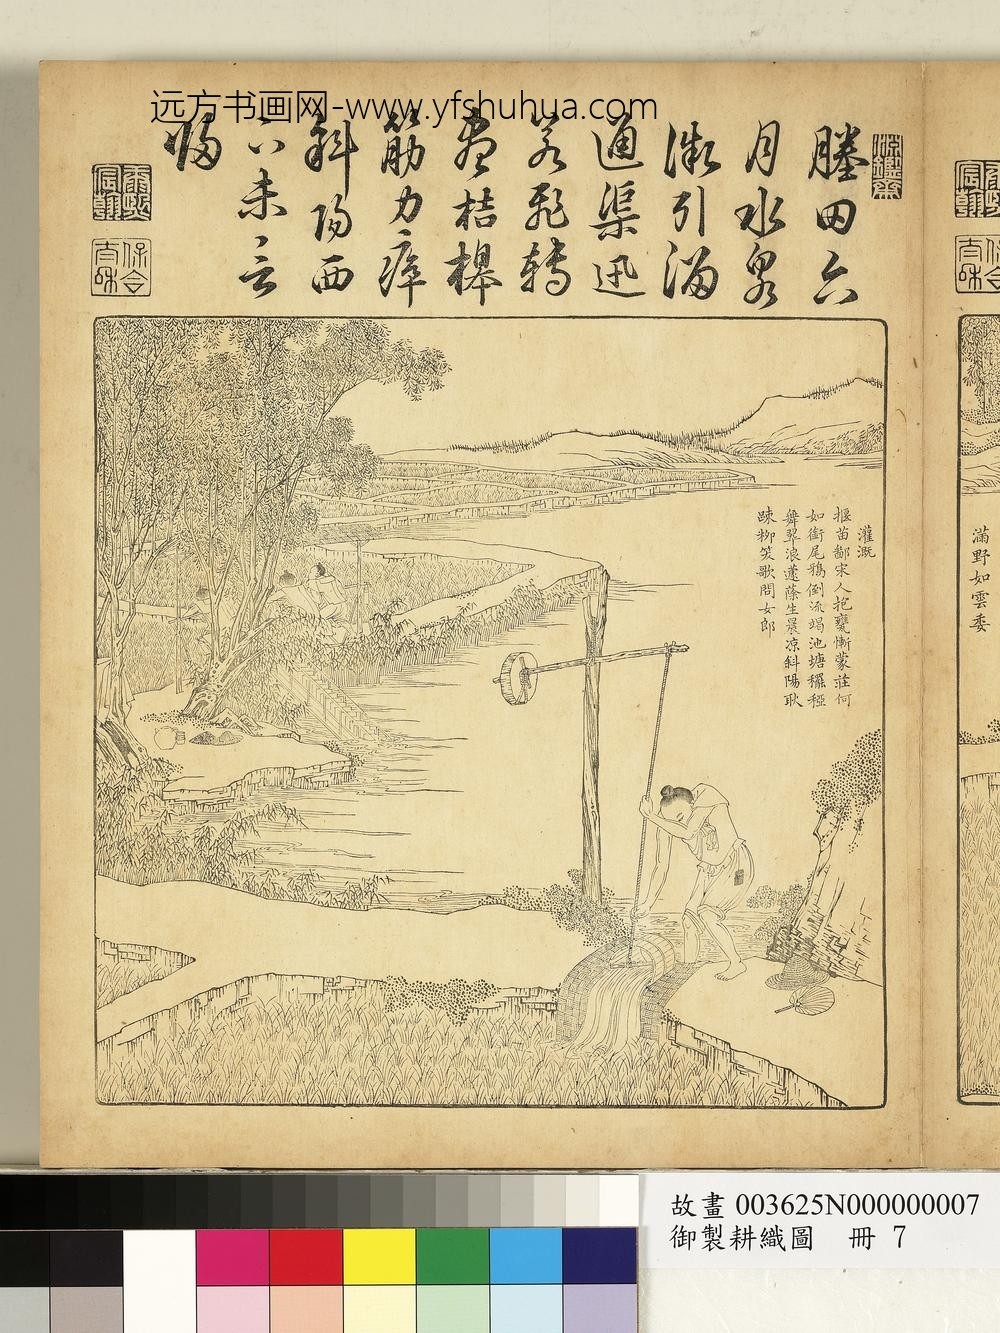 远方书画网-www.yfshuhua.com
塍田六
月水泉
微引溜
通渠迅
若飛轉
盡桔槔
筋力瘁
斜陽西
下未言
歸
灌溉
揠苗鄙宋人抱甕慚蒙莊何
如銜尾鴉倒流竭池塘䆉稏
舞翠浪蘧蒢生晨涼斜陽耿
疎柳笑歌問女郎
滿野如雲委
故畫 003625N000000007
御製耕織圖 冊 7